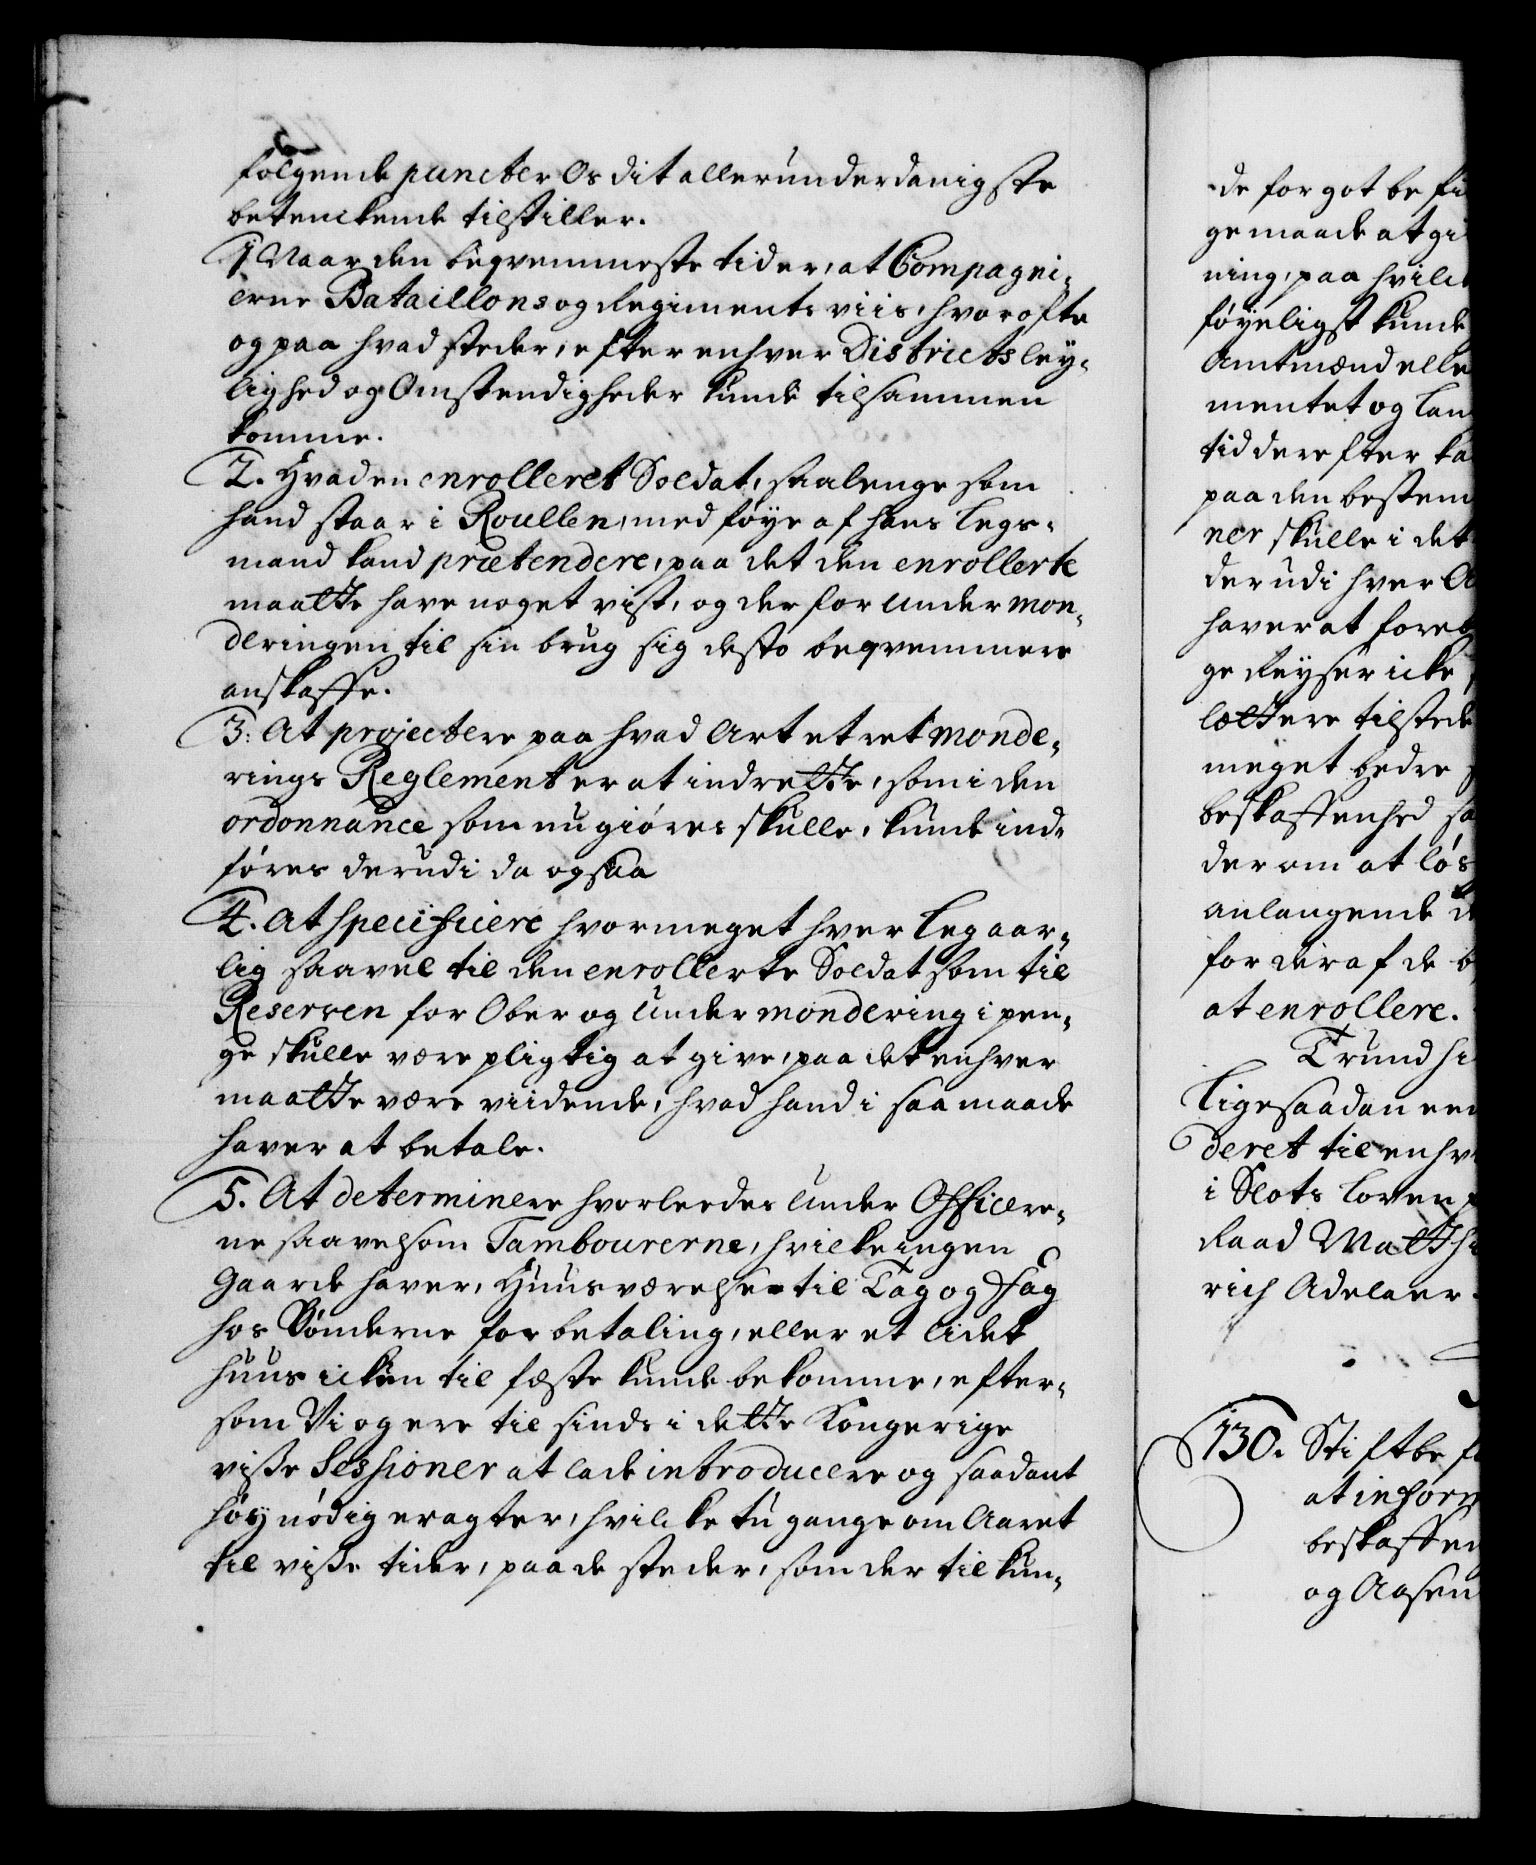 følgende puncter Os dit allerunderdanigste
betenckende tilstiller.
1 Naar den beqvemmeste tider, at Compagni-
erne Bataillons og Regiments viis, hvor ofte
og paa hvad steder, efter enhver Districts ley-
lighed og Omstendigheder kunde tilsammen
komme.
2. Hvad en enrolleret Soldat, saalenge som
hand staar i Roullen, med føye af hans Legs-
mand kand prætendere, paa det den enrollerte
maatte have noget vist, og der for under mon-
deringen til sin brug sig desto beqvemmere
anskaffe.
3. At projectere paa hvad Art et ret monde-
rings Reglement er at indrette, som i den
ordonnance som nu giøres skulle, kunde ind-
føres derudi da ogsaa
4. At specificere hvormeget hver Leg aar-
lig saavel til den enrollerte Soldat som til
Reserven for Ober og Under mondering i pen-
ge skulle være pligtig at give, paa det enhver
maatte være viidende, hvad hand i saa maade
haver at betale.
5. At determinere hvorledes Under Officere-
ne saavelsom Tambourerne, hvilke ingen
Gaarde haver, Huusværelse til Tag og Fag
hos Bønderne for betaling, eller et lidet
huus icken til fæste kunde bekomme, efter-
som Vi og ere til sinds i dette Kongerige
visse Sessioner at lade introducere og saadant
høy nødig eragter, hvilcke tu gange om Aaret
til visse tider, paa de steder, som der til kun-
de for got befi
ge maade at gi
ning, paa hvilc
føyeligst kunde
Amtmænd elle
mentet og Lan
tid derefter ka
paa den bestem
ner skulle i det
derudi hver A
haver at foret
ge Reyser icke
lættere tilstede
meget bedre
beskaffenhed sa
der om at løs
anlangende d
for deraf de b
at enrollere.
Trundhi
Ligesaadan een
deret til enhv
i Slots Loven
Raad Matthi
rich Adelaer
130. Stiftbef
at inform
beskaffen
og Aasen